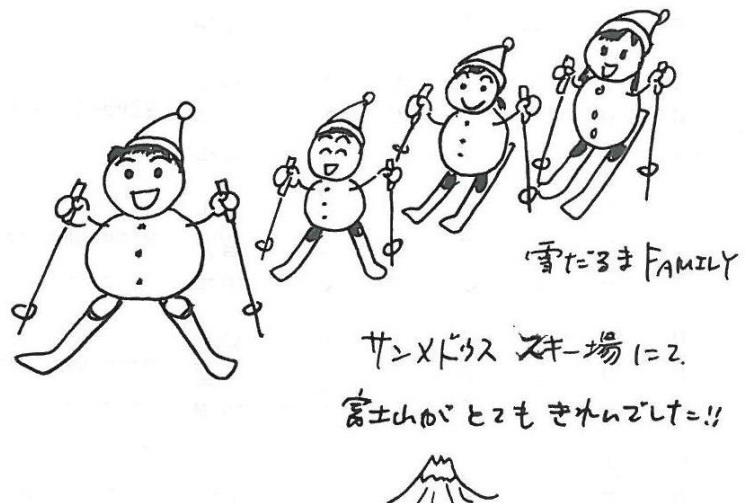 雪だるまFAMILY
サンメドウス スキー場にて.
富士山がとてもきれいでした!!